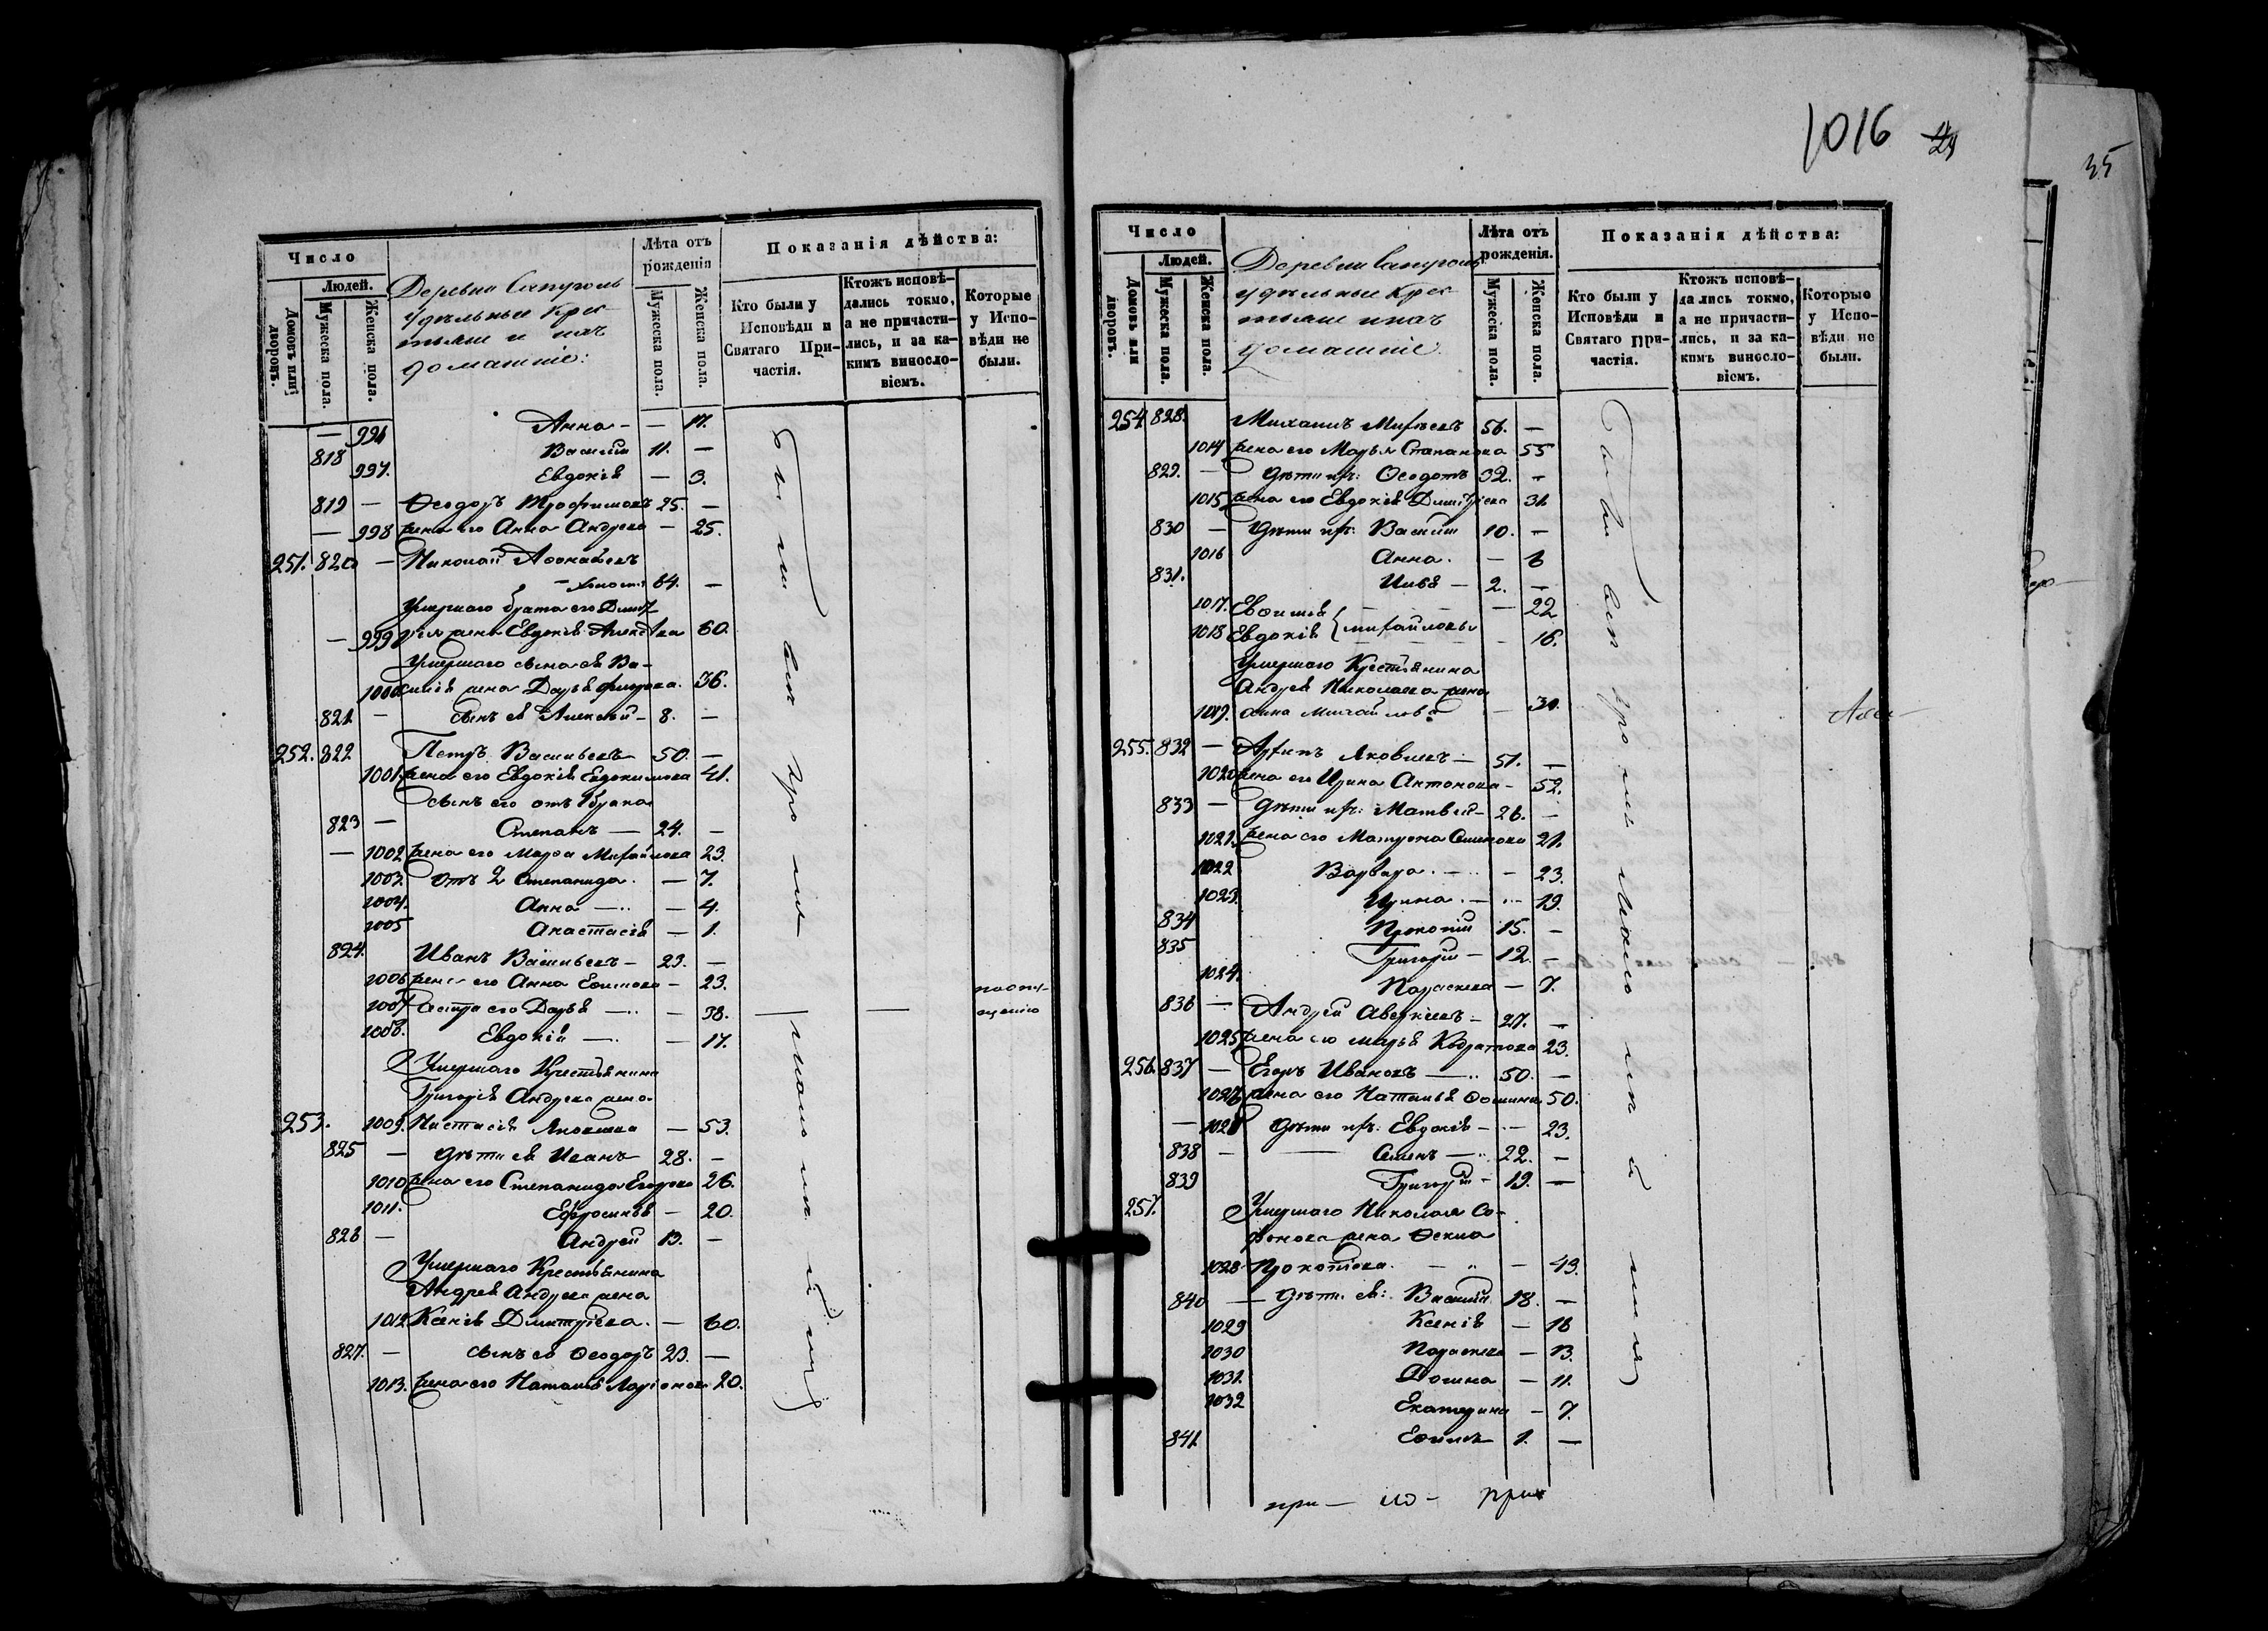 Число
Людей.
Домовъ или дворовъ.
Мужеска пола.
Женска пола.
Деревни
удѣльные крес
тьяне и ихъ
домашніе:
Лѣта отъ
рожденія
Мужеска пола.
Женска пола.
Показанія дѣйства:
Кто были у
Исповѣди и
Святаго При-
частія.
Ктожъ исповѣ-
дались токмо,
а не причасти-
лись, и за ка-
кимъ виносло-
віемъ.
Которые
у Испо-
вѣди не
были.
— 996 Анна — — 17.
818 Василій 11. —
997. Евдокія — 3.
819 — Ѳеодоръ Трофимовъ 25. —
— 998 жена его Анна Андреева — 25.
251. 820 — Николай
холостъ 64. —
Умершаго брата его Дмит
— 999 рія жена Евдокія 60.
Умершаго сына ея Ва-
1000 силія жена Дарья 36.
821 — сынъ ея Алексѣй — 8. —
252. 822 Петръ Васильевъ 50. —
1001. жена его Евдокія Евдокимова 41.
сынъ его отъ 1 брака
823 — Степанъ — 24. —
— 1002 жена его Марѳа Михайлова 23.
1003. отъ 2 Степанида. — 7.
1004. Анна — — 4.
1005 Анастасія — 1.
824. Иванъ Васильевъ — 29. —
1006 жена его Анна Ефимова — 23.
1007 Сестра его Дарья — — 38. — —
1008. Евдокія — — 17.
Умершаго Крестьянина
Григорія Андреева жена
253. 1009. Настасія Яковлева — 53.
825 — дѣти ея Иванъ 28. —
1010 жена его Степанида Егорова 26.
1011. Ефросинья — 20.
826 — Андрей 13. —
Умершаго Крестьянина
Андрея Андреева жена
1012 Ксенія Дмитріева. — 60.
827. — сынъ ея Ѳеодоръ 23. —
1013. жена его Наталья Ларіонова 20.
1016 29
Число
Людей.
Домовъ или дворовъ.
Мужеска пола.
Женска пола.
Деревни
удѣльные крес
тьяне и ихъ
домашніе.
Лѣта отъ
рожденія.
Мужеска пола.
Женска пола.
Показанія дѣйства:
Кто были у
Исповѣди и
Святаго При-
частія.
Ктожъ исповѣ-
дались токмо,
а не причасти-
лись, и за ка-
кимъ виносло-
віемъ.
Которые
у Испо-
вѣди не
были.
254. 828. Михаилъ 56. —
1014 жена его Марья Степанова 55
829. — дѣти ихъ: Ѳеодотъ 32. —
1015 жена его Евдокія Дмитріева 31.
830 — дѣти ихъ: Василій 10. —
1016 Анна. — 6
831. Илья — 2. —
1017. Евфимія — 22
1018 Евдокія { Михайловы — 16.
Умершаго Крестьянина
Андрея Николаева жена
1019. Анна Михайлова — 30.
255. 832 — Архипъ Яковлевъ — 51. —
1020 жена его Ирина Антонова — 52.
833 — дѣти ихъ: Матвѣй — 26. —
1021. жена его Матрена Семенова 21.
1022 Варвара. — — 23.
1023. Ирина. — — 19.
834 Прокопій 15. —
835 Григорій — 12. —
1024. Параскева — 7.
836 — Андрей Аверкіевъ — 27. —
1025 жена его Марья Кодратова 23.
256. 837 — Егоръ Ивановъ — 50. —
1026 жена его Наталья Ѳомина 50.
— 1027 дѣти ихъ: Евдокія — — 23.
838 — Семенъ — 22. —
839 Григорій — 19. —
257. Умершаго Николая Со-
фонова жена Ѳекла
1028 Прокопіева. — — 49.
840 — дѣти ея: Василій 18. —
1029 Ксенія — 16
1030 Параскева — 13.
1031. Домна — 11.
1032 Екатерина — 7.
841. Ефимъ 1. —
35